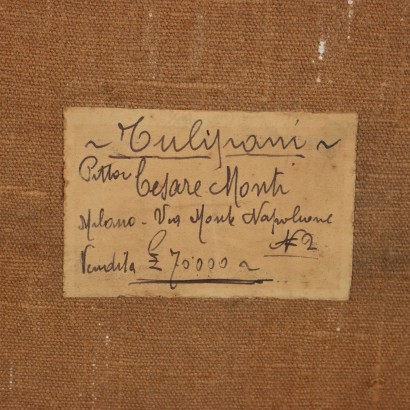 ~ Tulipani ~
Pittor Cesare Monti
Milano - Via Monte Napoleone
N 2
Vendita £ 70000 ~